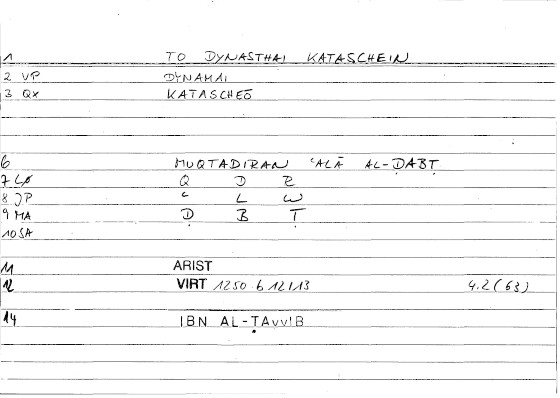 1 TO DYNASTHAI KATASCHEIN
2 VP DYNAMAI
3 Qx KATASCHEŌ
6 MUQTADIRAN ʿALĀ AL-ḌABṬ
7 LØ Q D R
8 JP ʿ L W
9 MA Ḍ B Ṭ
10 SA
11 ARIST
12 VIRT 1250 b 12/13 4.2(63)
14 IBN AL-ṬAyyIB